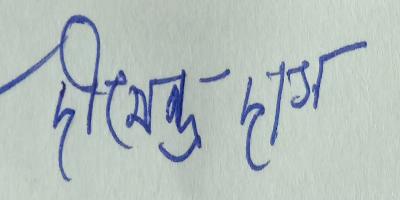 দীপেন্দ্র দাস